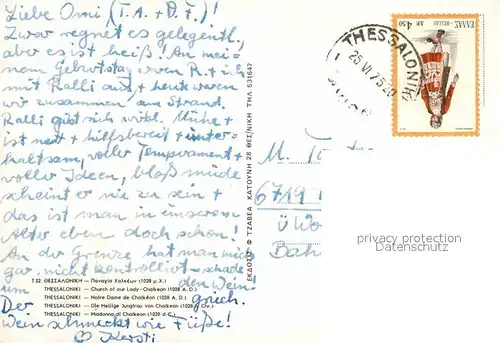 Liebe Omi (T.A. + D.F.)!
Zwar regnet es gelegentl.,
aber es ist heiß! An mei-
nem Geburtstag waren R. + ich
mit Ralli aus, + heute waren
wir zusammen am Strand.
Ralli gibt sich wirkl. Mühe +
ist nett + hilfsbereit + unter-
haltsam, voller Temperament +
voller Ideen, bloß müde
scheint er nie zu sein +
das ist man in unserem
Alter eben doch schon!
An der Grenze hat man mich
gar nicht kontrolliert – schade
um den Wein!
Der griech.
Wein schmeckt wie Füße!
Kersti
T.32 ΘΕΣΣΑΛΟΝΙΚΗ — Παναγία Χαλκέων (1028 μ.Χ.)
THESSALONIKI — Church of our Lady - Chalkeon (1028 A.D.)
THESSALONIKI — Notre Dame de Chalkéon (1028 A. D.)
THESSALONIKI — Die Heilige Jungfrau von Chalkeon (1028 n. Chr.)
THESSALONIKI — Madonna di Chalkeon (1028 d.C.)
ΕΚΔΟΣΙΣ © ΤΖΑΒΕΛΑ ΚΑΤΟΥΝΗ 28 ΘΕΣ/ΝΙΚΗ ΤΗΛ 531642
THESSALONIKI
25 VI 75 20
ΕΛΛΑΣ - HELLAS ΔΡ. 4,50
M.
6719
Bah
privacy protection
Datenschutz